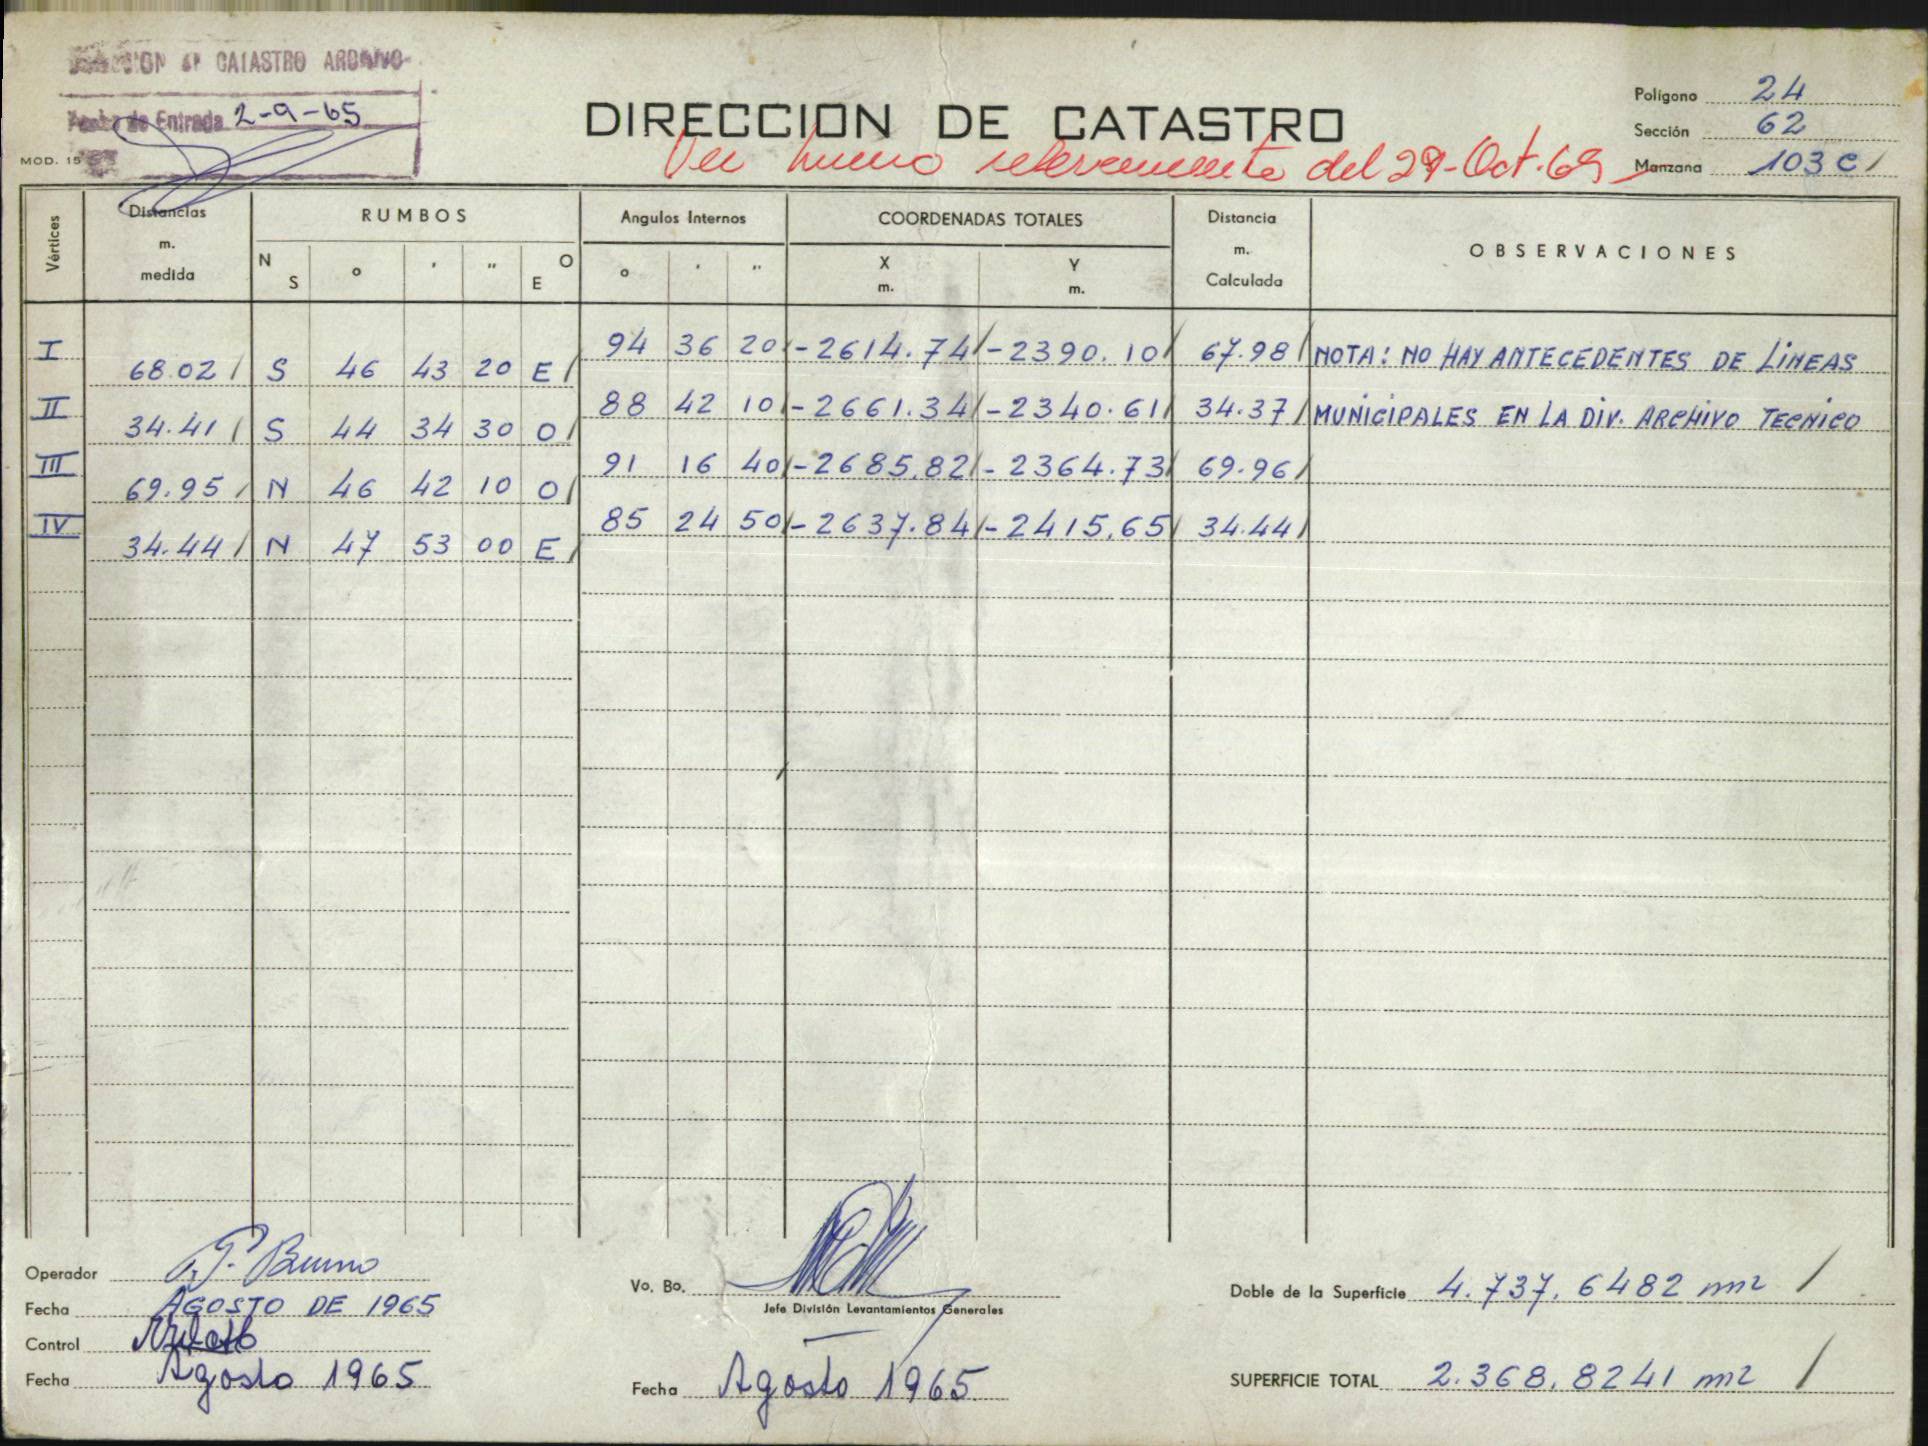 DIRECCION DE CATASTRO ARCHIVO
Fecha de Entrada 2-9-65
MOD. 15
DIRECCION DE CATASTRO
Ver nuevo relevamiento del 29-Oct.69
Polígono 24
Sección 62
Manzana 103 C /
Vértices
Distancias m. medida
RUMBOS
N S ° ' " O E
Angulos Internos
° ' "
COORDENADAS TOTALES
X m. Y m.
Distancia m. Calculada
OBSERVACIONES
I 94 36 20 / -2614.74 / -2390.10 / 67.98 / NOTA: NO HAY ANTECEDENTES DE LINEAS
68.02 / S 46 43 20 E /
II 88 42 10 / -2661.34 / -2340.61 / 34.37 / MUNICIPALES EN LA DIV. ARCHIVO TECNICO
34.41 / S 44 34 30 O /
III 91 16 40 / -2685.82 / -2364.73 / 69.96 /
69.95 / N 46 42 10 O /
IV 85 24 50 / -2637.84 / -2415.65 / 34.44 /
34.44 / N 47 53 00 E /
Operador Bruno
Fecha AGOSTO DE 1965
Control
Fecha Agosto 1965
Vo. Bo.
Jefe División Levantamientos Generales
Fecha Agosto 1965
Doble de la Superficie 4.737,6482 m2 /
SUPERFICIE TOTAL 2.368,8241 m2 /